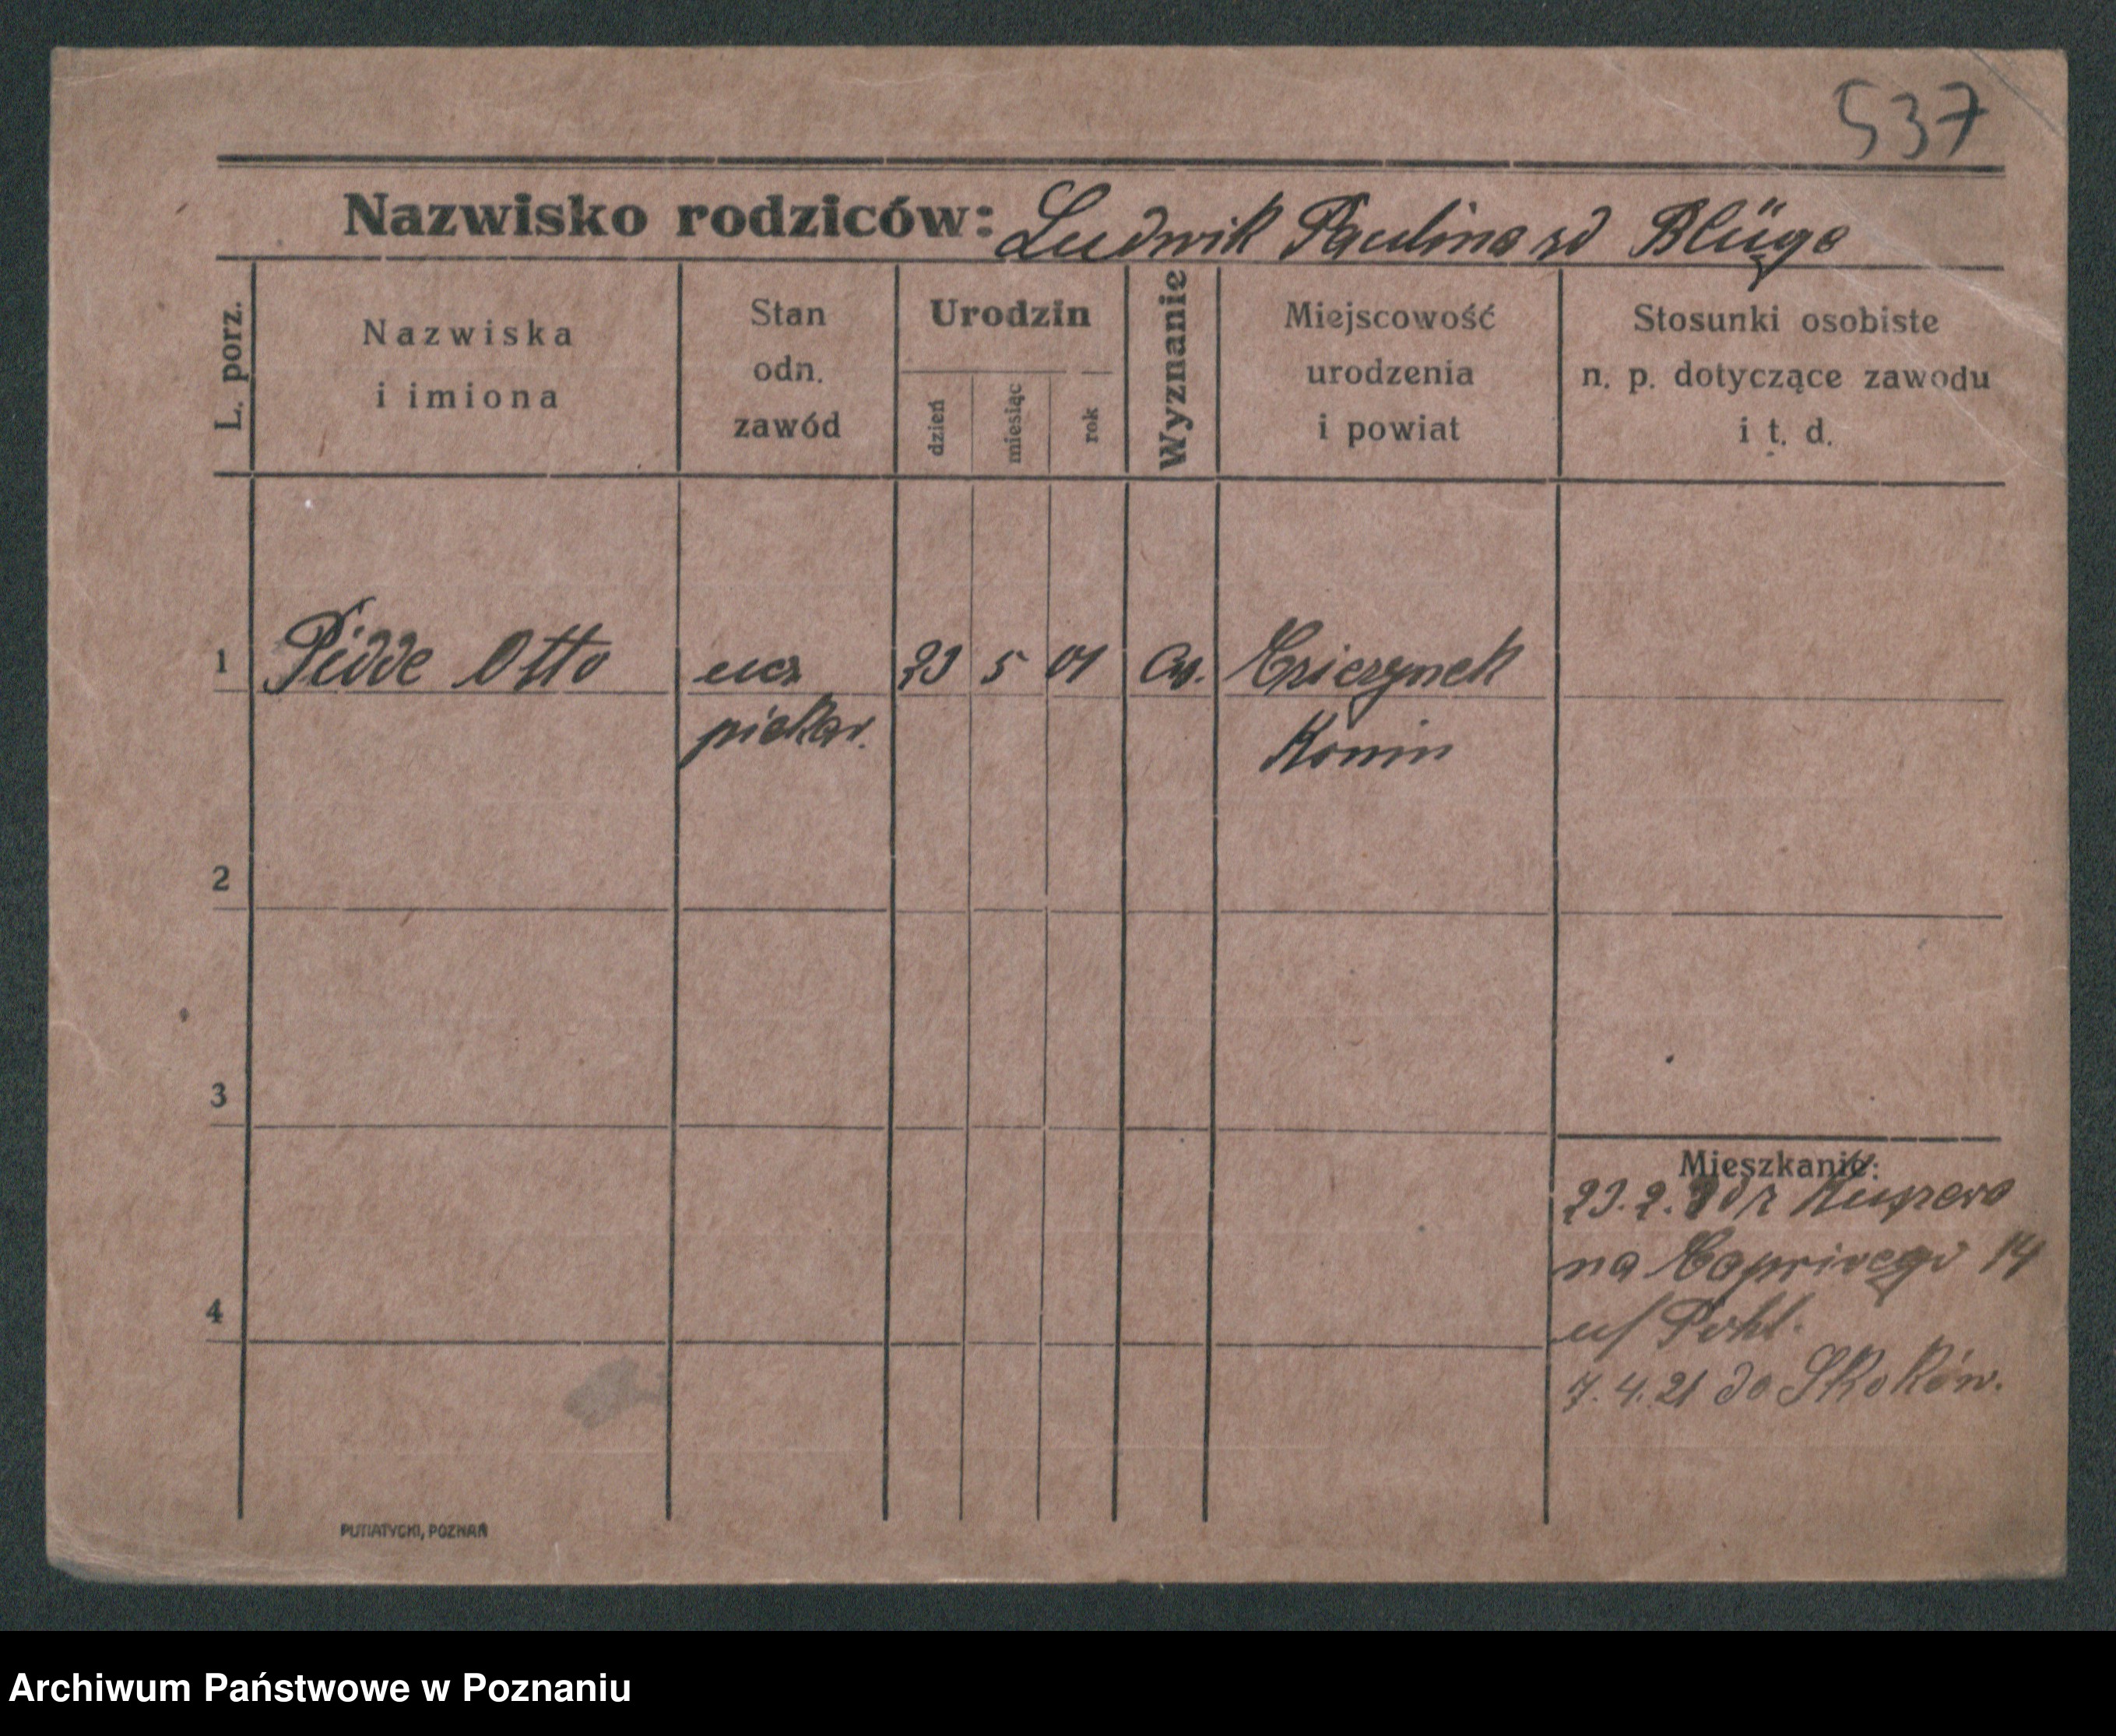 537
Nazwisko rodziców: Ludwik Paulina zd Blüge
L. porz.
Nazwiska
i imiona
Stan
odn.
zawód
Urodzin
dzień
miesiąc
rok
Wyznanie
Miejscowość
urodzenia
i powiat
Stosunki osobiste
n. p. dotyczące zawodu
i t. d.
1 Pidde Otto ucz 23 5 01
piekar. Konin
2
3
4
Mieszkanie:
23. 2.
na Caprivego 14
u/ Pohl.
7. 4. 21 do Skoków.
PUTIATYCKI, POZNAŃ
Archiwum Państwowe w Poznaniu